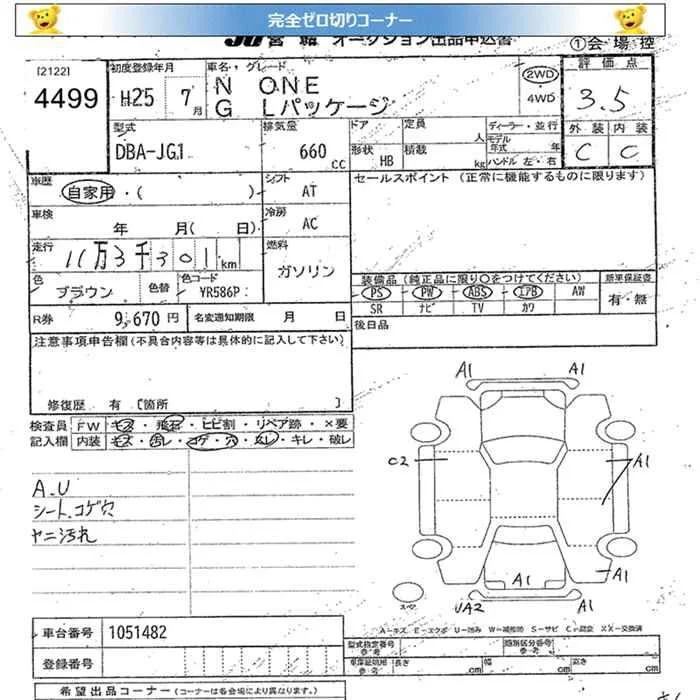 完全ゼロ切りコーナー
JU宮城 オークション出品申込書
①会場控
[2122]
4499
初度登録年月
H25 7月
車名・グレード
N ONE
G Lパッケージ
2WD
4WD
評価点
3.5
外装 内装
C C
型式
DBA-JG1
排気量
660 cc
ドア
定員 人
形状
HB
積載 kg
ディーラー・並行
モデル年式 年
ハンドル 左・右
車歴
自家用・( )
シフト
AT
セールスポイント (正常に機能するものに限ります)
車検
年 月( 日)
冷房
AC
走行
11万3千301km
燃料
ガソリン
色
ブラウン
色替
色コード
YR586P
装備品 (純正品に限り○をつけてください)
新車保証書
PS PW ABS エアB AW
有・無
SR ナビ TV カワ
R券 9,670 円
名変通知期限 月 日
後日品
注意事項申告欄 (不具合内容等は具体的に記入して下さい)
修復歴 有 〔箇所 〕
検査員
記入欄
FW キズ・飛石・ヒビ割・リペア跡・×要
内装 キズ・汚レ・コゲ・穴・ヌレ・キレ・破レ
A.U
シート、コゲ穴
ヤニ汚れ
A1 A1
C2 A1
A1
A1
UA2 A1
スペア
A-キズ E-エクボ U-凹み W-補修跡 S-サビ C-腐食 XX-交換済
車台番号 1051482
登録番号
型式指定番号 参考
類別区分番号 参考
車庫証明用 参考
長さ cm 幅 cm 高さ cm
希望出品コーナー (コーナーは各会場により異なります。)